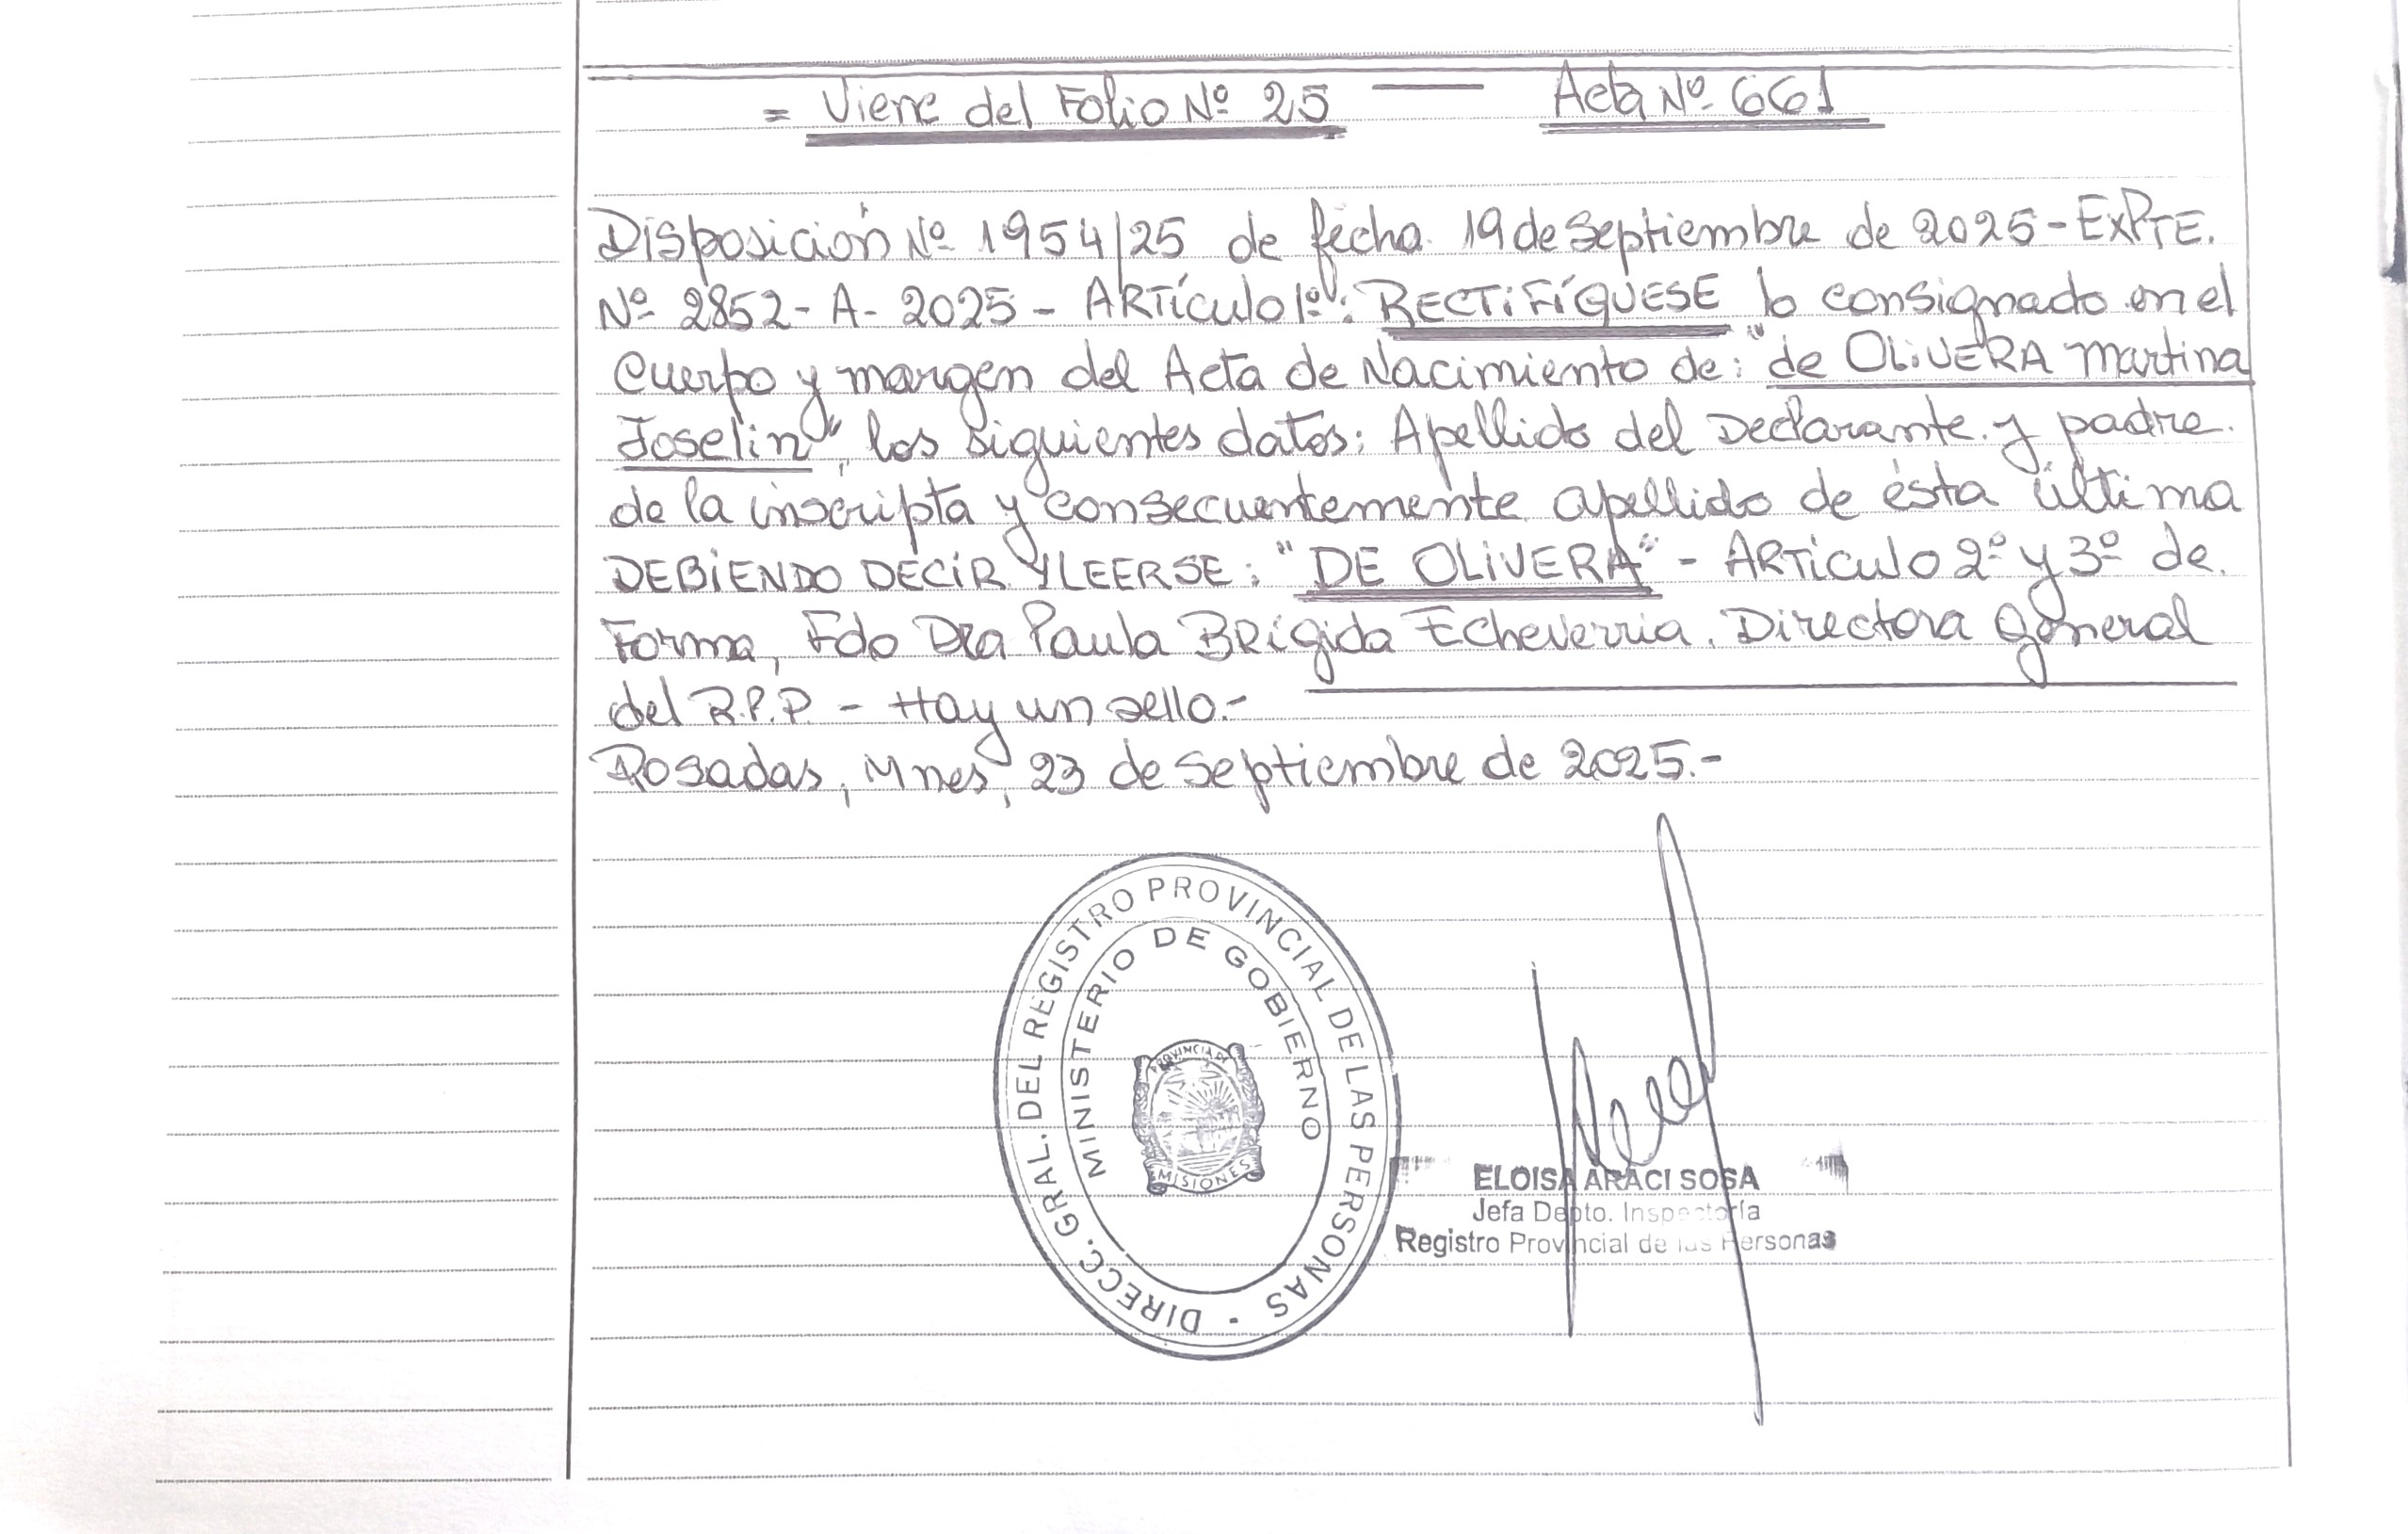 = Viene del Folio Nº 25 — Acta Nº 661
Disposición Nº 1954/25 de fecha 19 de Septiembre de 2025 - EXPTE.
Nº 2852 - A - 2025 - ARTÍCULO 1º: RECTIFÍQUESE lo consignado en el
Cuerpo y margen del Acta de Nacimiento de: "de OLIVERA Martina
Joselin", los siguientes datos: Apellido del Declarante y padre
de la inscripta y consecuentemente apellido de ésta última
DEBIENDO DECIR Y LEERSE: "DE OLIVERA" - ARTICULO 2º y 3º de
Forma, Fdo Dra Paula Brígida Echeverria. Directora General
del R.P.P. - Hay un sello.-
Posadas, Mnes, 23 de Septiembre de 2025.-
DIRECC. GRAL. DEL REGISTRO PROVINCIAL DE LAS PERSONAS -
MINISTERIO DE GOBIERNO
PROVINCIA DE
MISIONES
ELOISA ARACI SOSA
Jefa Depto. Inspectoría
Registro Provincial de las Personas